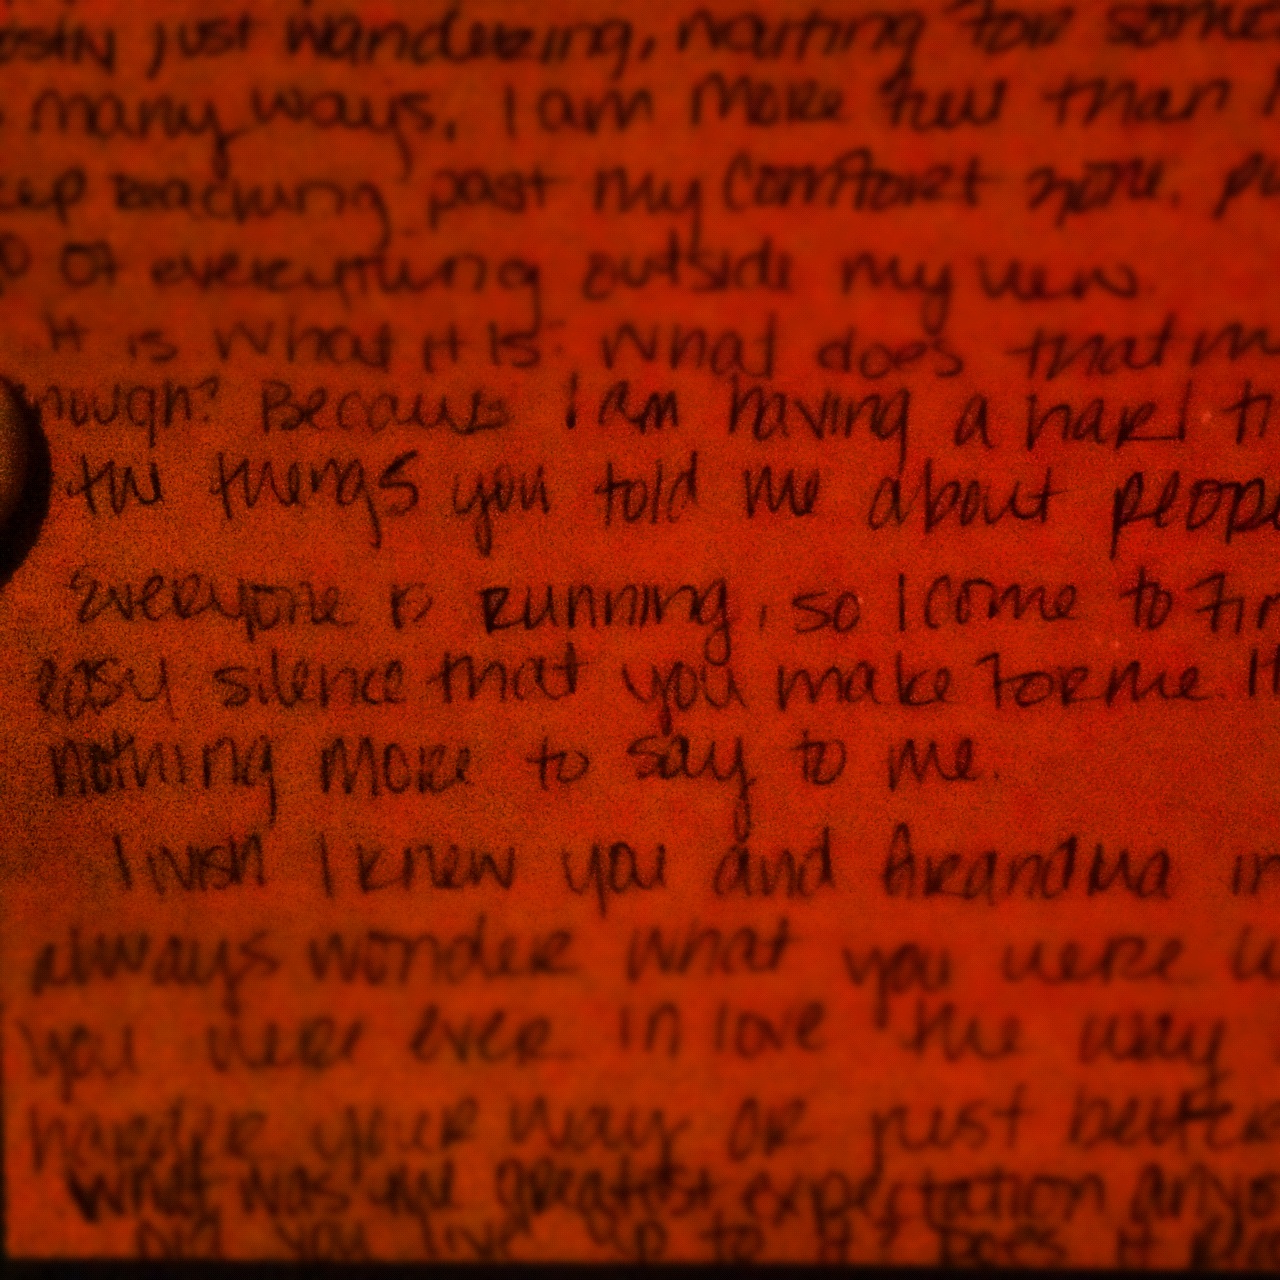 just wandering, waiting for some
many ways. I am more here than
past my comfort zone.
of everything outside my view
It is what it is. What does that m
nough? Because I am having a hard ti
the things you told me about peop
Everyone is running, so I come to fin
easy silence that you make for me. It
nothing more to say to me.
I wish I knew you and Grandma in
always wonder what you were
you were ever in love the way
harder your way or just better
what was the greatest expectation anyo
Did you live up to it? Does it